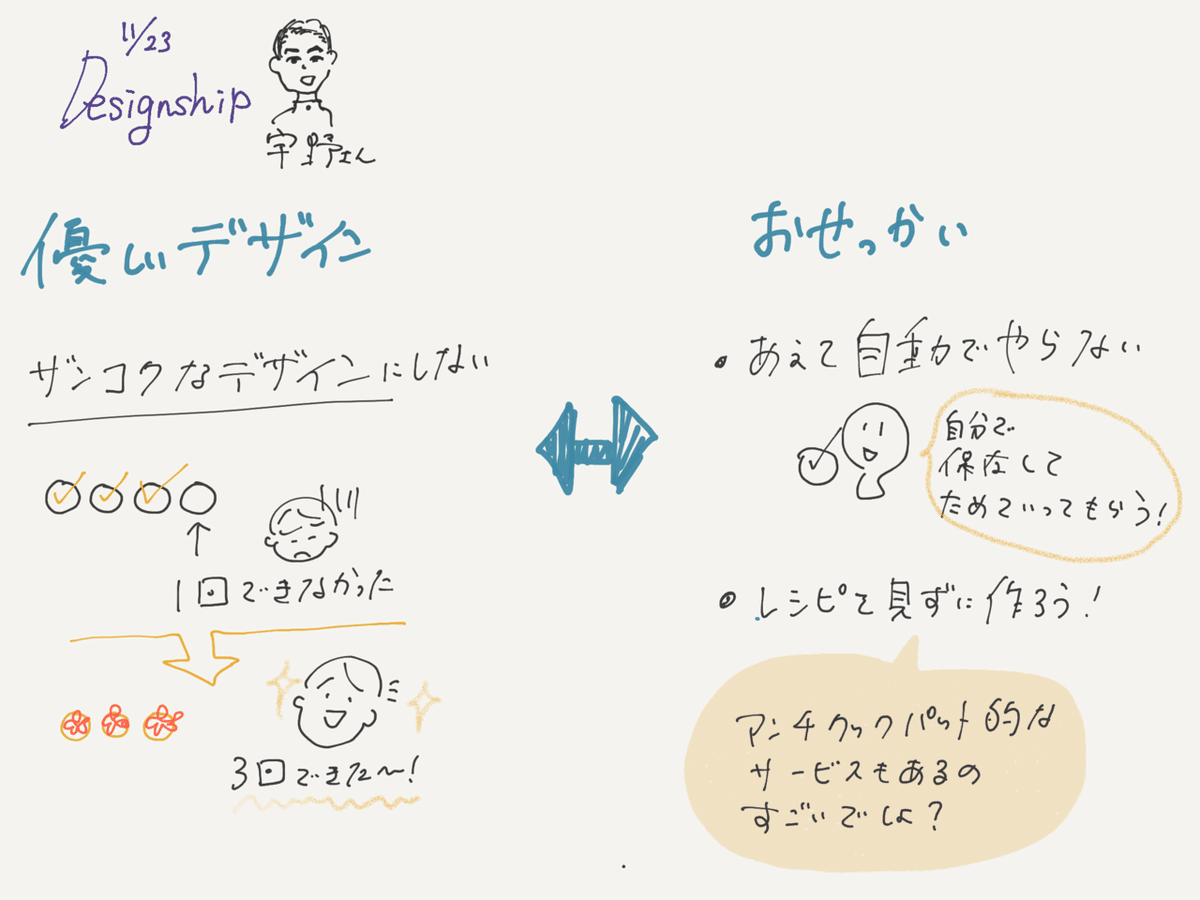 11/23
Designship
宇野さん
優しいデザイン
ザンコクなデザインにしない
1回できなかった
3回できた〜!
おせっかい
• あえて自動でやらない
自分で
保存して
ためていってもらう!
• レシピを見ずに作ろう!
アンチクックパット的な
サービスもあるの
すごいでしょ?